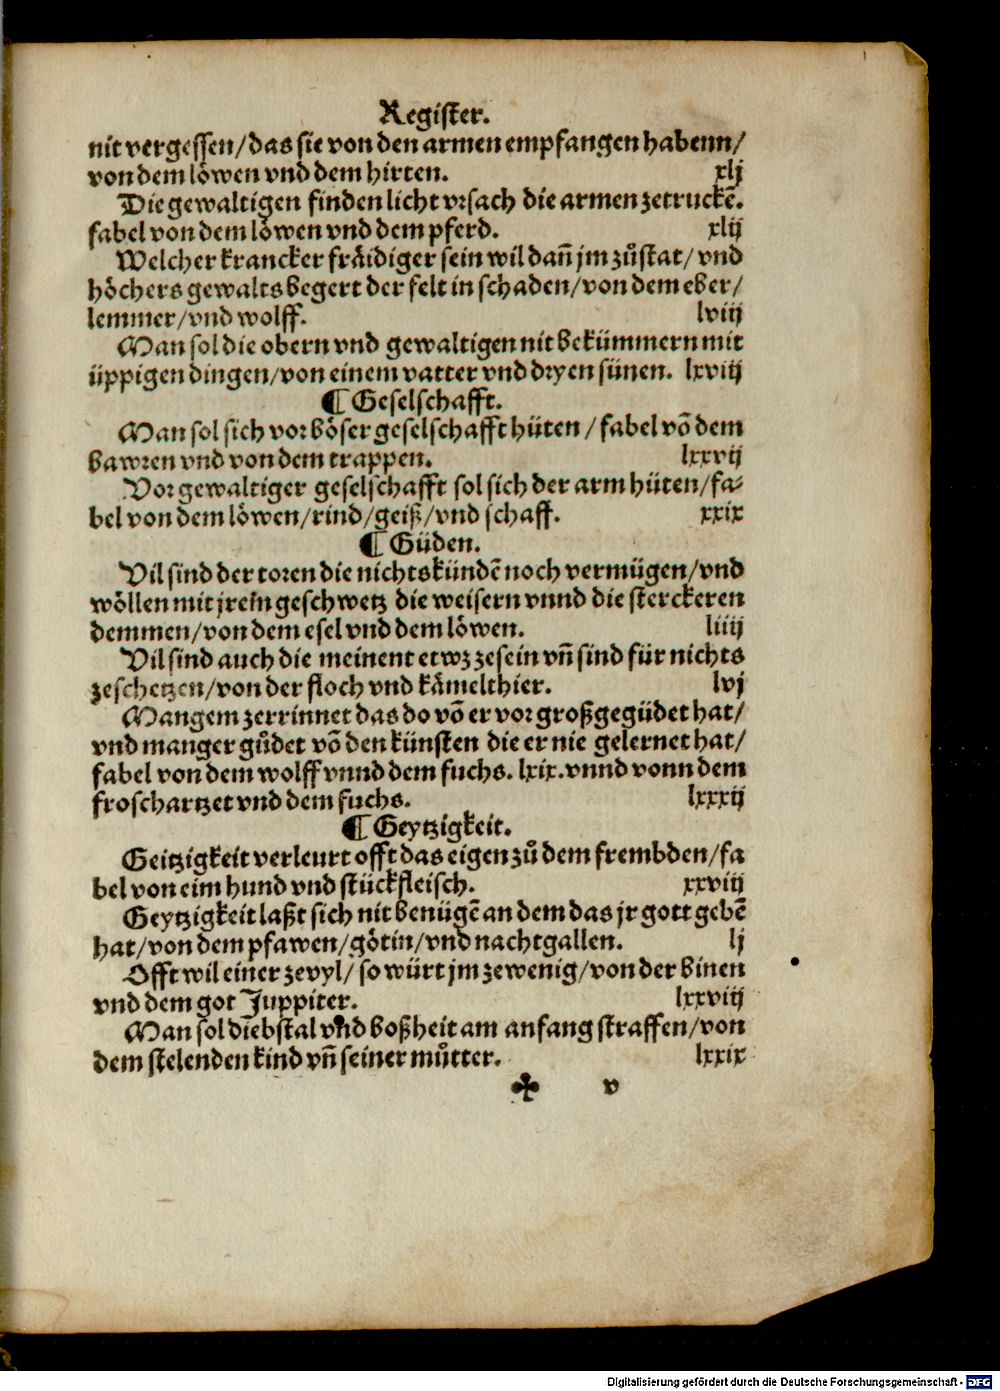 Register.
nit vergessen/das sie von den armen empfangen habenn/
von dem löwen vnd dem hirten. xlj
Die gewaltigen finden licht vrsach die armen zetruckē.
fabel von dem löwen vnd dem pferd. xlij
Welcher krancker fräidiger sein wil dañ jm zůstat/ vnd
höchers gewalts begert der felt in schaden/von dem eber/
lemmer/vnd wolff. lviij
Man sol die obern vnd gewaltigen nit bekümmern mit
üppigen dingen/von einem vatter vnd dryen sünen. lxviij
¶ Geselschafft.
Man sol sich vor böser geselschafft hüten / fabel vō dem
bawren vnd von dem trappen. lxxvij
Vor gewaltiger geselschafft sol sich der arm hüten/fa-
bel von dem löwen/rind/geiß/vnd schaff. xxix
¶ Güden.
Vil sind der toren die nichts kündē noch vermügen/vnd
wöllen mit jrem geschwetz die weisern vnnd die sterckeren
demmen/von dem esel vnd dem löwen. liiij
Vil sind auch die meinent etwz zesein vñ sind für nichts
zeschetzen/von der floch vnd kämelthier. lvj
Mangem zerrinnet das do vō er vor groß gegüdet hat/
vnd manger gůdet vō den künsten die er nie gelernet hat/
fabel von dem wolff vnnd dem fuchs. lxix. vnnd vonn dem
froschartzet vnd dem fuchs. lxxxij
¶ Geytzigkeit.
Geitzigkeit verleurt offt das eigen zů dem frembden/fa
bel von eim hund vnd stückfleisch. xxviij
Geytzigkeit laßt sich nit benügē an dem das jr gott gebē
hat/von dem pfawen/götin/vnd nachtgallen. lj
Offt wil einer zevyl/ so würt jm zewenig/von der binen
vnd dem got Juppiter. lxxviij
Man sol diebstal vnd boßheit am anfang straffen/von
dem stelenden kind vñ seiner můtter. lxxix
♣ v
Digitalisierung gefördert durch die Deutsche Forschungsgemeinschaft - DFG